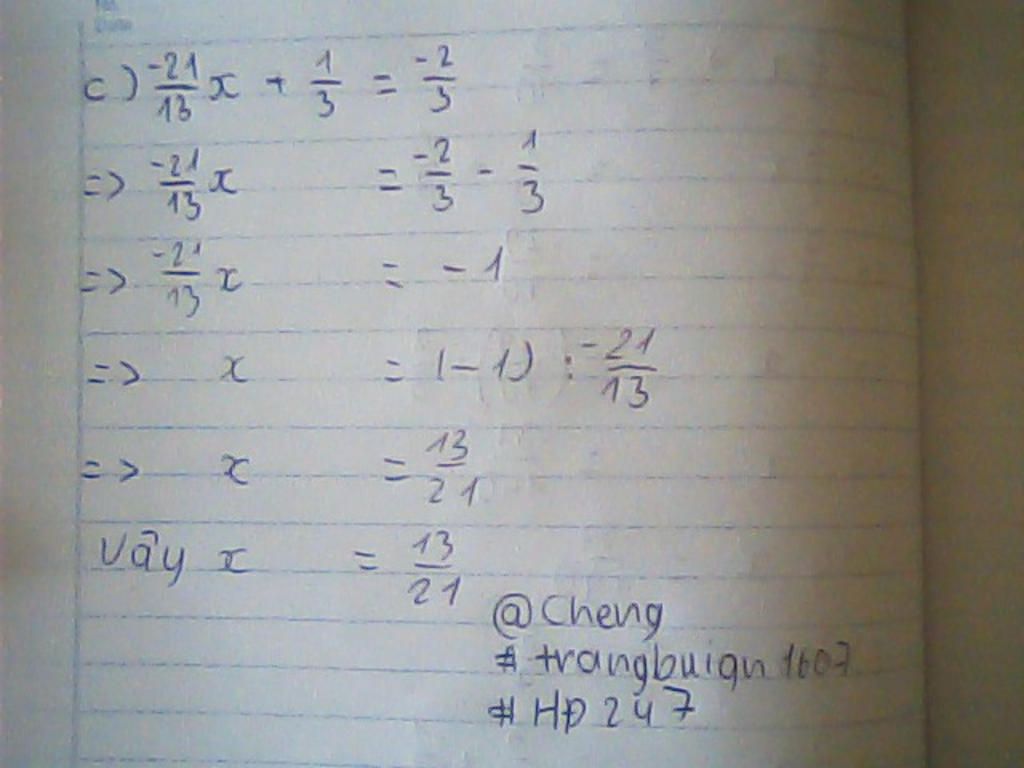 No.
Date
c) -21/13 x + 1/3 = -2/3
=> -21/13 x = -2/3 - 1/3
=> -21/13 x = -1
=> x = (-1) : -21/13
=> x = 13/21
Vậy x = 13/21
@Cheng
# trangbuiqn1607
# Hp247